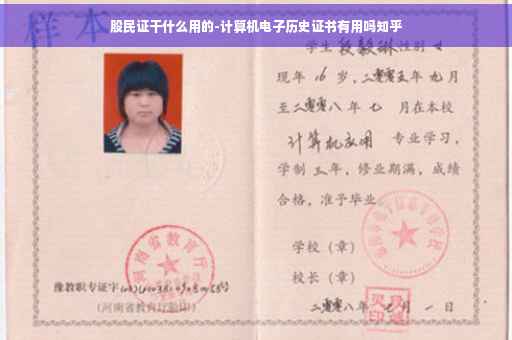 股民证干什么用的-计算机电子历史证书有用吗知乎
样本
学生 段毅琳 性别 女
现年 16 岁，二零零五年 九月
至二零零八年 七 月在本校
计算机应用 专业学习，
学制 三年，修业期满，成绩
合格，准予毕业
学校（章）
校长（章）
豫教职专证字
（河南省教育厅验印）
二零零八年 七月 一 日
河南省教育厅